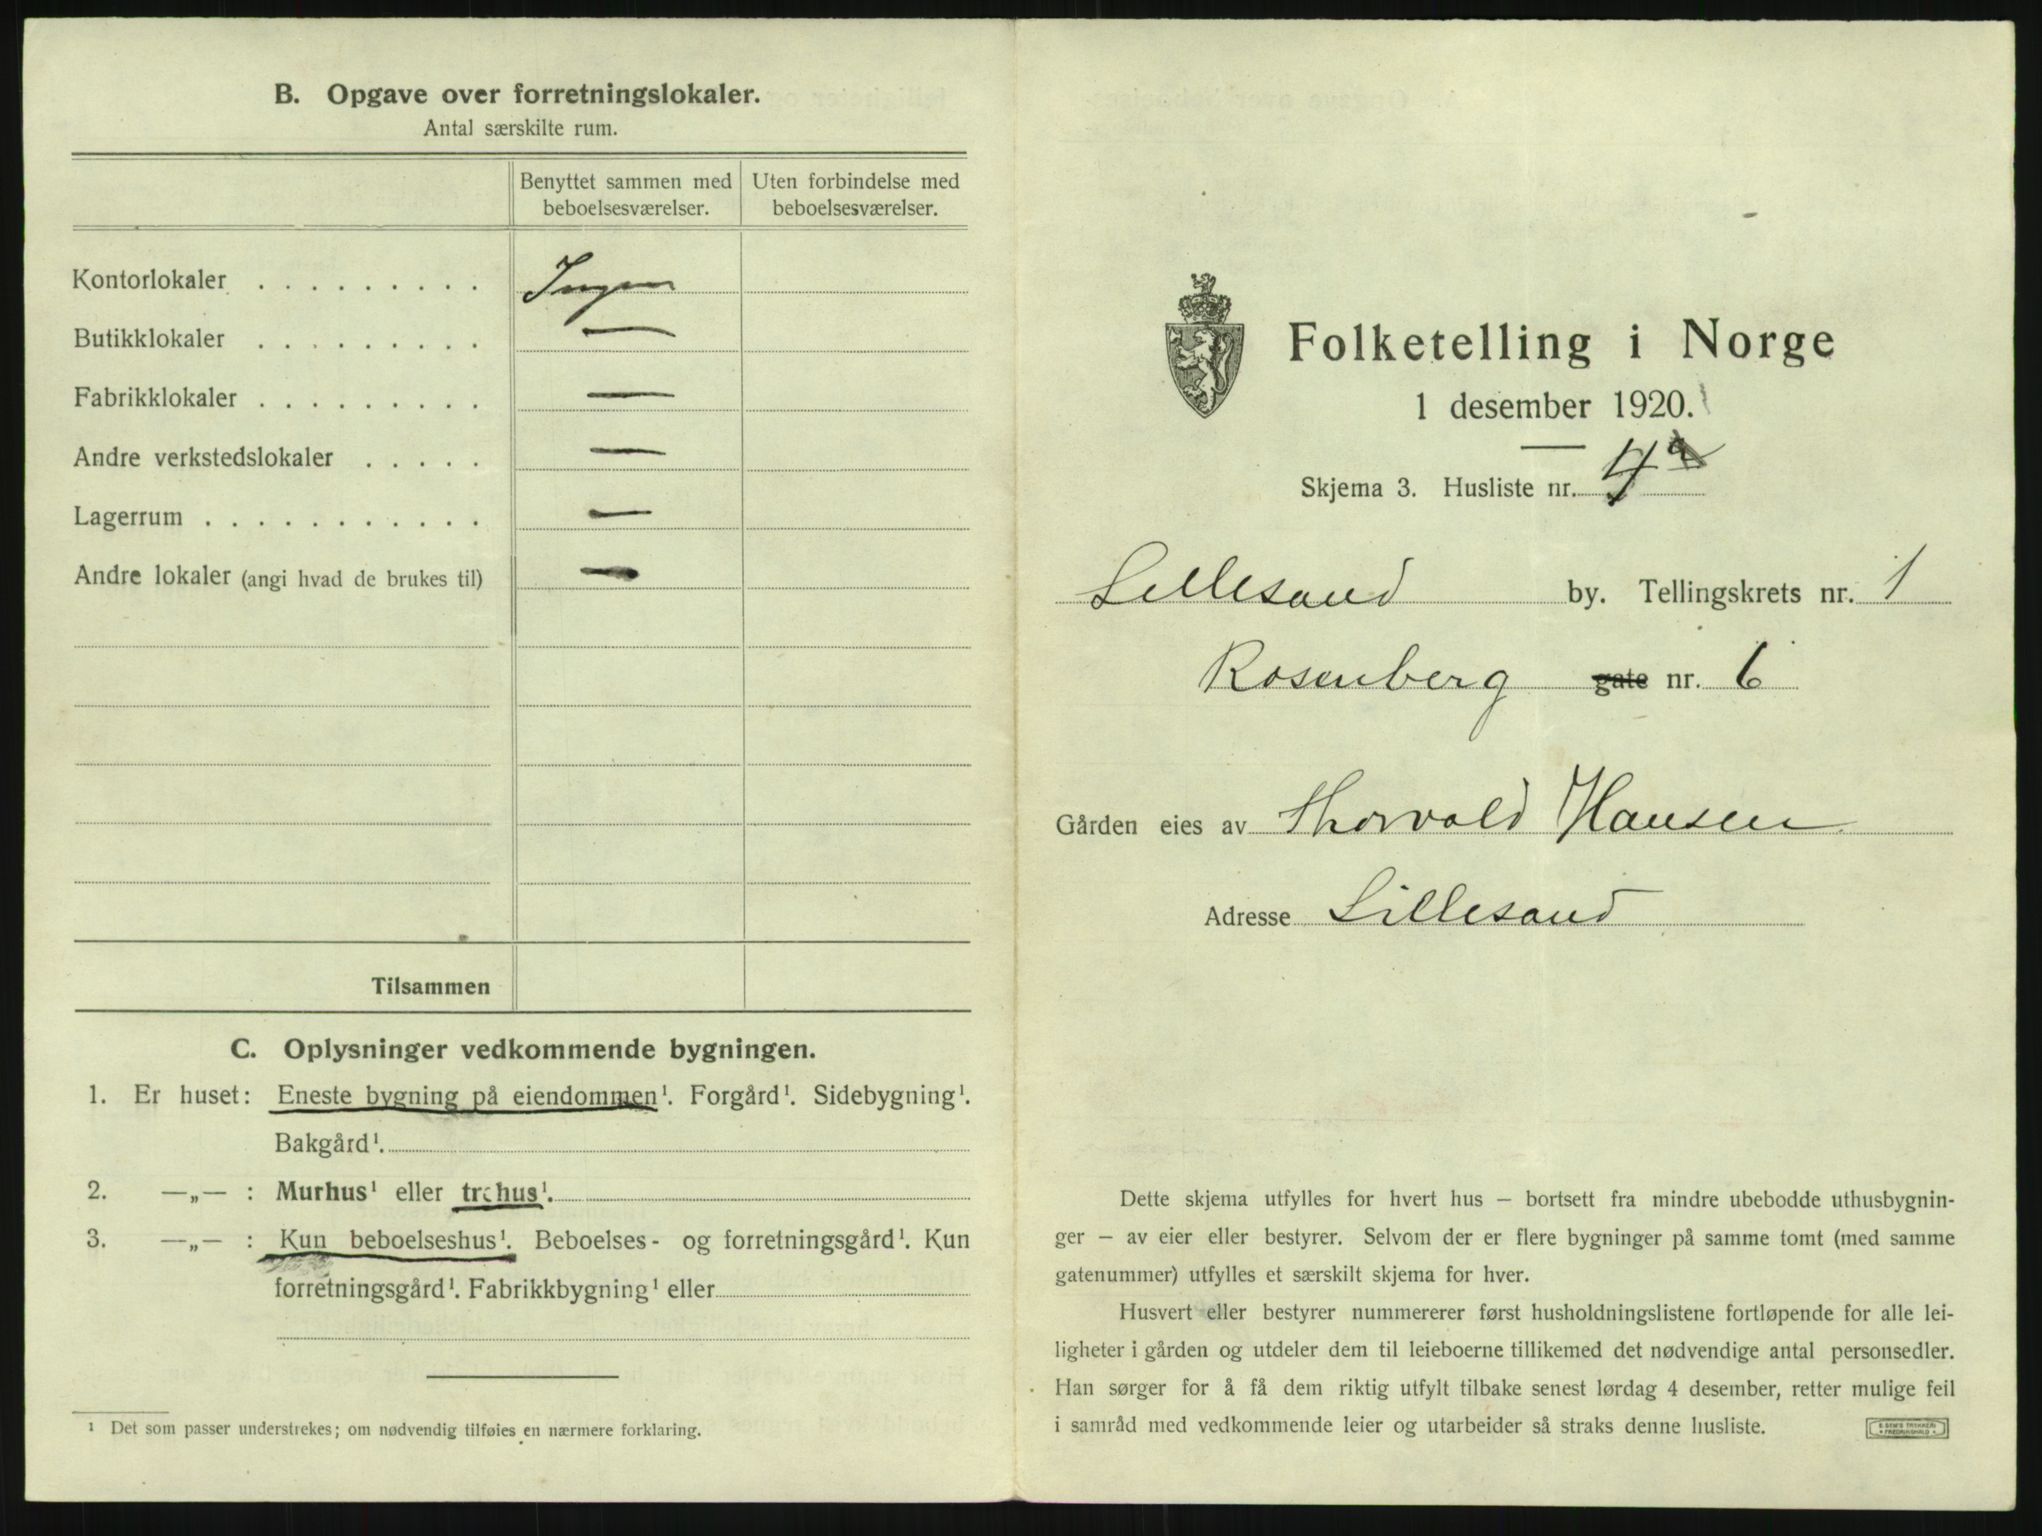 B. Opgave over forretningslokaler.
Antal særskilte rum.
Benyttet sammen med beboelsesværelser.
Uten forbindelse med beboelsesværelser.
Kontorlokaler . . . . . . . . . Ingen
Butikklokaler . . . . . . . . . —
Fabrikklokaler . . . . . . . . . —
Andre verkstedslokaler . . . . . —
Lagerrum . . . . . . . . . . . —
Andre lokaler (angi hvad de brukes til) —
Tilsammen
C. Oplysninger vedkommende bygningen.
1. Er huset: Eneste bygning på eiendommen¹. Forgård¹. Sidebygning¹.
Bakgård¹.
2. —„— : Murhus¹ eller trehus¹.
3. —„— : Kun beboelseshus¹. Beboelses- og forretningsgård¹. Kun
forretningsgård¹. Fabrikkbygning¹ eller
¹ Det som passer understrekes; om nødvendig tilføies en nærmere forklaring.
Folketelling i Norge
1 desember 1920.
Skjema 3. Husliste nr. 4
Lillesand by. Tellingskrets nr. 1
Rosenberg gate nr. 6
Gården eies av Thorvald Hansen
Adresse Lillesand
Dette skjema utfylles for hvert hus — bortsett fra mindre ubebodde uthusbygnin-
ger — av eier eller bestyrer. Selvom der er flere bygninger på samme tomt (med samme
gatenummer) utfylles et særskilt skjema for hver.
Husvert eller bestyrer nummererer først husholdningslistene fortløpende for alle lei-
ligheter i gården og utdeler dem til leieboerne tillikemed det nødvendige antal personsedler.
Han sørger for å få dem riktig utfylt tilbake senest lørdag 4 desember, retter mulige feil
i samråd med vedkommende leier og utarbeider så straks denne husliste.